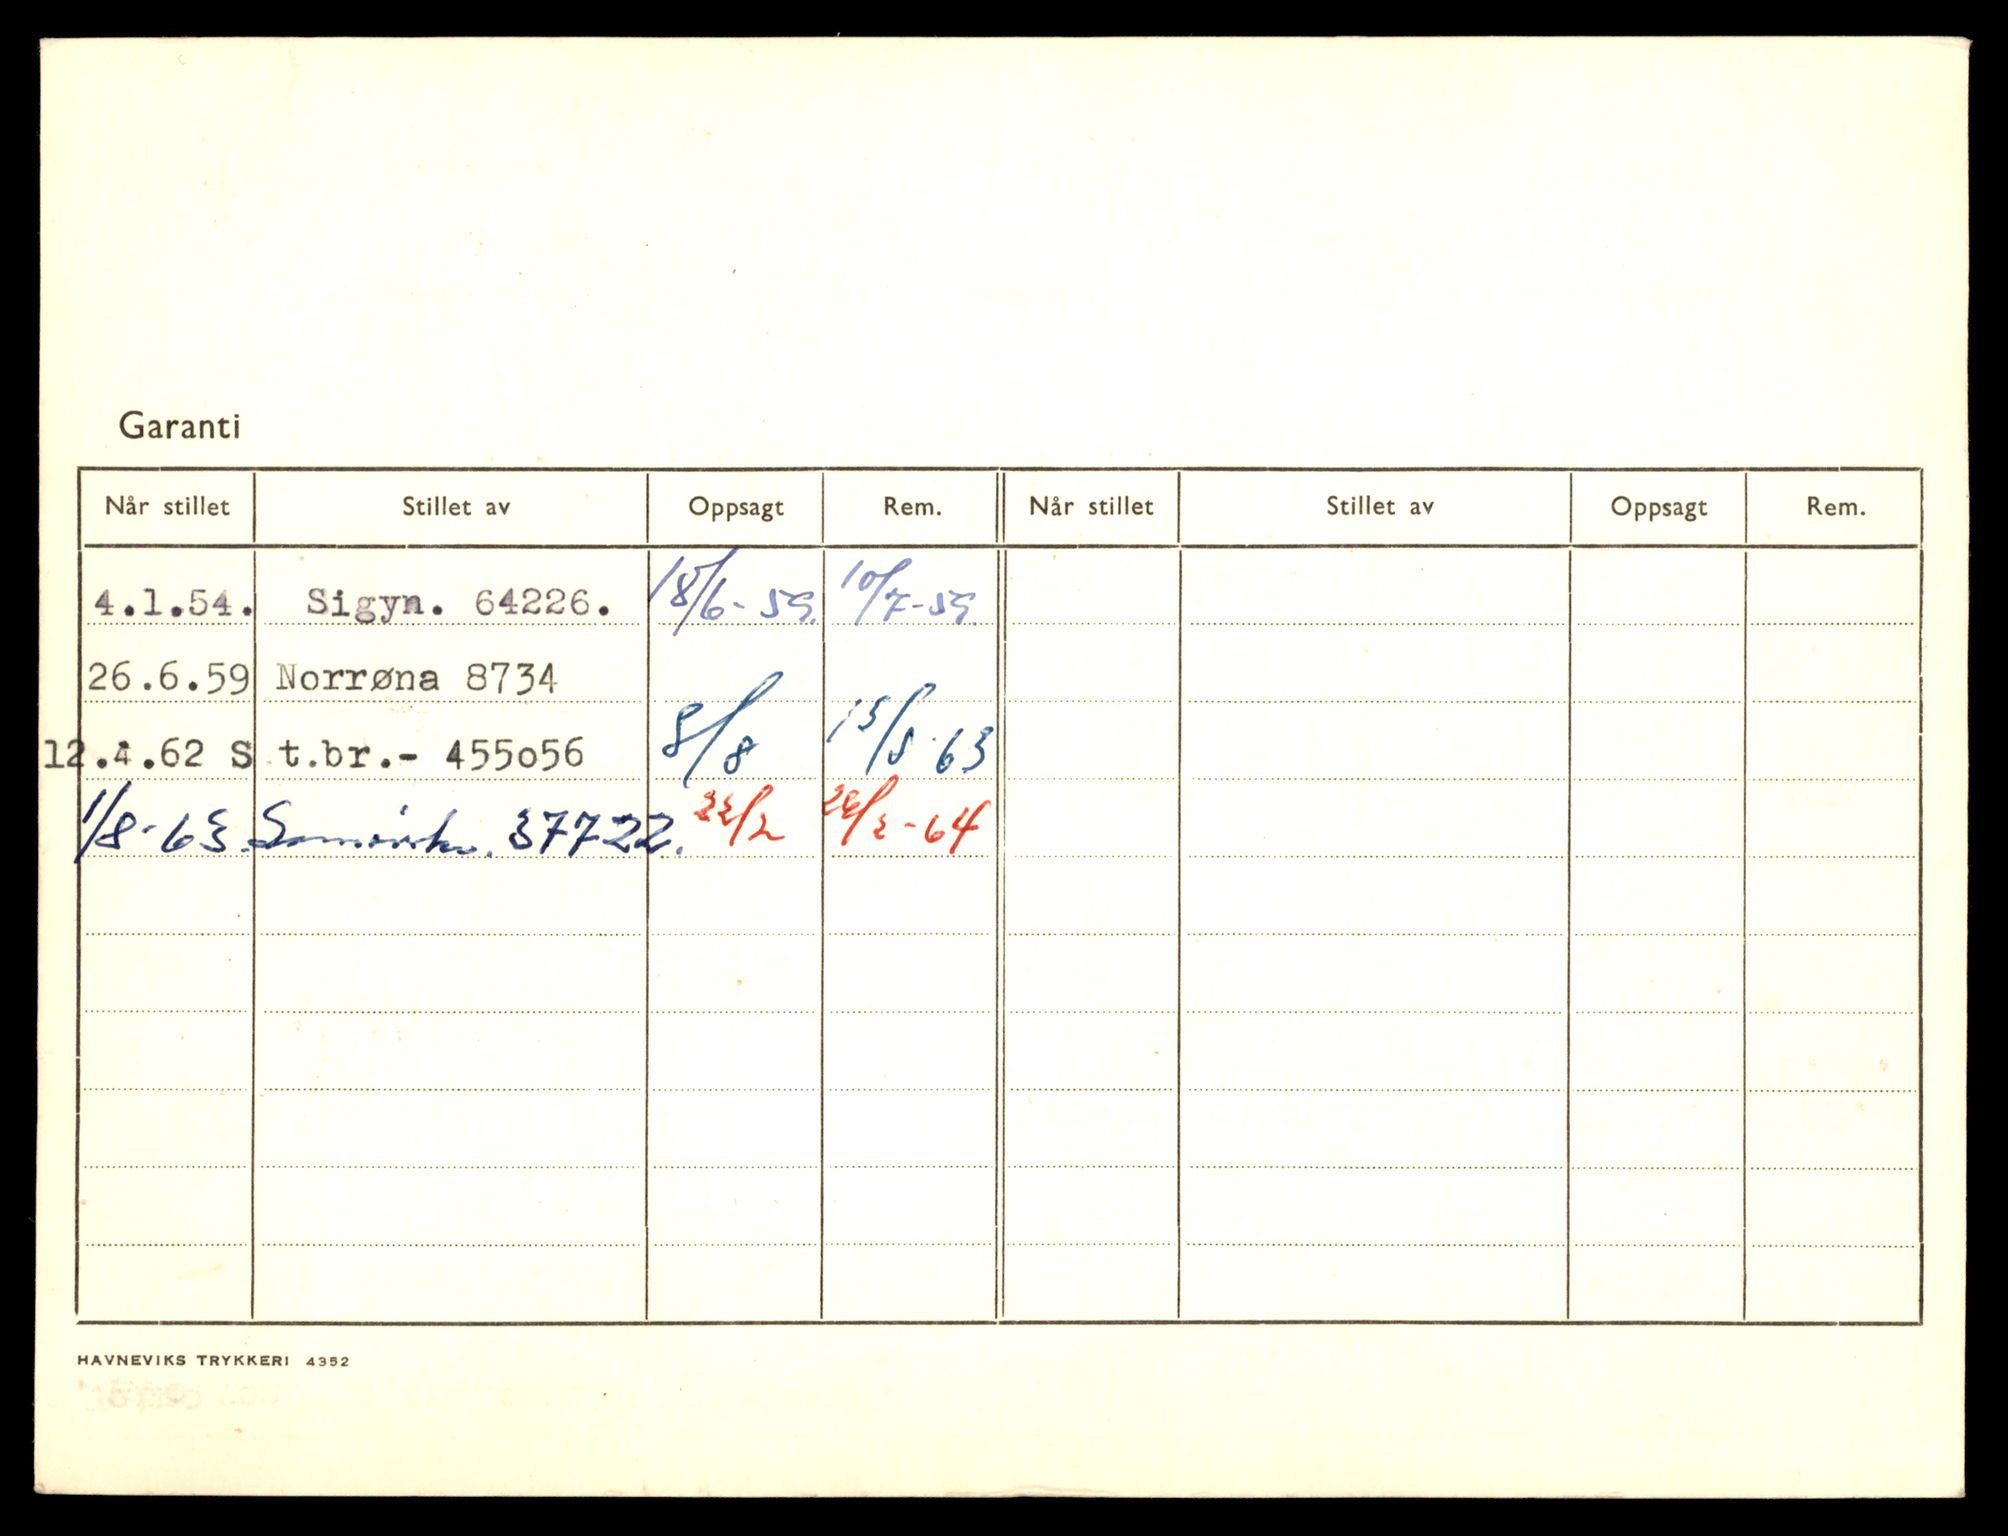 Garanti
Når stillet Stillet av Oppsagt Rem. Når stillet Stillet av Oppsagt Rem.
4.1.54. Sigyn. 64226. 18/6-59. 10/7-59.
26.6.59 Norrøna 8734
12.4.62 S t.br.- 455o56 8/8 15/8-63
1/8-63. 37722. 22/2 26/2-64
HAVNEVIKS TRYKKERI 4352